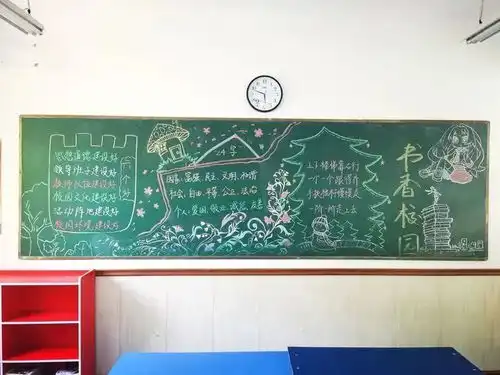 思想道德建设好
领导班子建设好
教师队伍建设好
校园文化建设好
活动阵地建设好
校园环境建设好
六个好
24字
国家：富强、民主、文明、和谐
社会：自由、平等、公正、法治
个人：爱国、敬业、诚信、友善
上下楼梯靠右行
一个一个跟着前
手扶栏杆慢慢走
一阶一阶走上去
书香校园